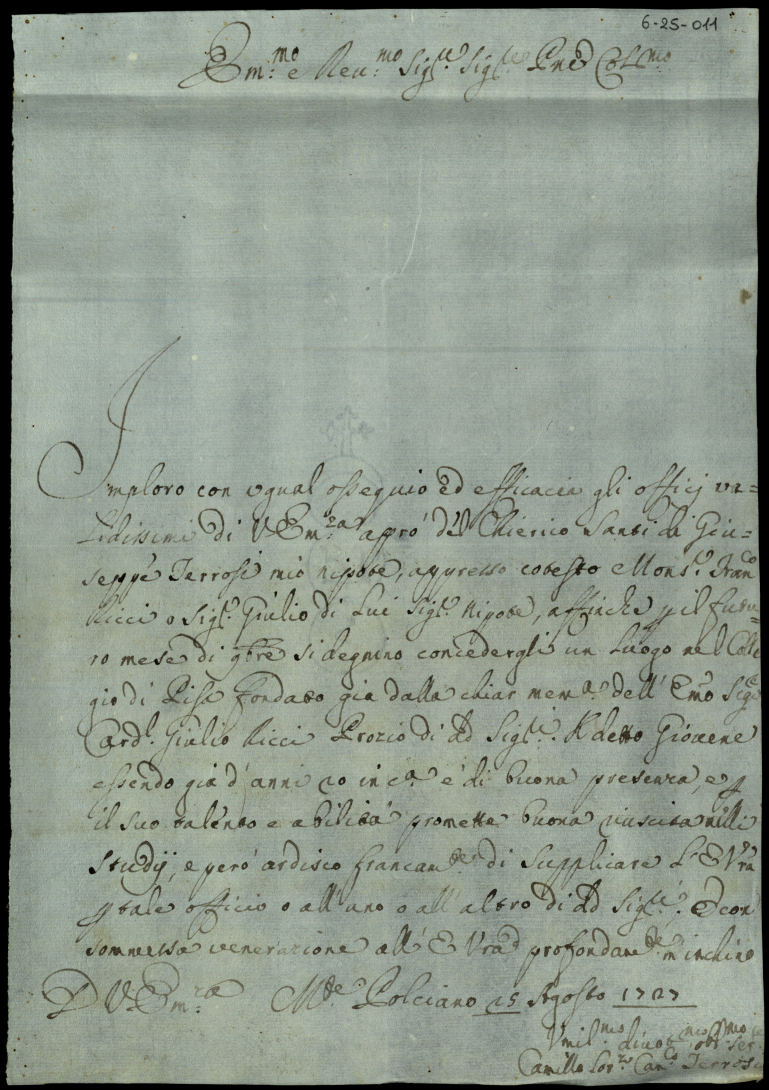 6-25-011
Em.mo e Reu.mo Sig.re Sig.re Pne Col.mo
Imploro con ugual ossequio ed efficacia gli officj va=
lidissimi di V Em.za a pró del Chierico Santi di Giu=
seppe Terrosi mio nipote, appresso cotesto Mons.r Fran.co
Ricci o Sig.r Giulio di lui Sig.r Nipote, affinche p il futu=
ro mese di 9bre si degnino concedergli un luogo nel Colle
gio di Pisa fondato gia dalla chiar mem.a dell' Emo Sig.r
Card.l Giulio Ricci Prozio di dd Sig.ri. Il detto Giovene
essendo gia d' anni 20 in c.a e di buona presenza, e p
il suo talento e abilitá promette buona riuscita nelli
Studij, e peró ardisco francam.te di supplicare l' E Vra
p tale officio o all' uno o all' altro di dd Sig.ri. Ed con
sommessa venerazione all' E Vra profondam.te m' inchino
D V Em.za M.te Polciano 25 Agosto 1727
Vmil.mo diuot.mo obl.mo ser.
Camillo Lor.zo Can.co Terrosi